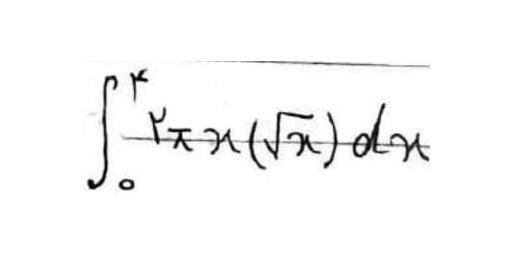 ∫₀^۴ ۲πx(√x) dx